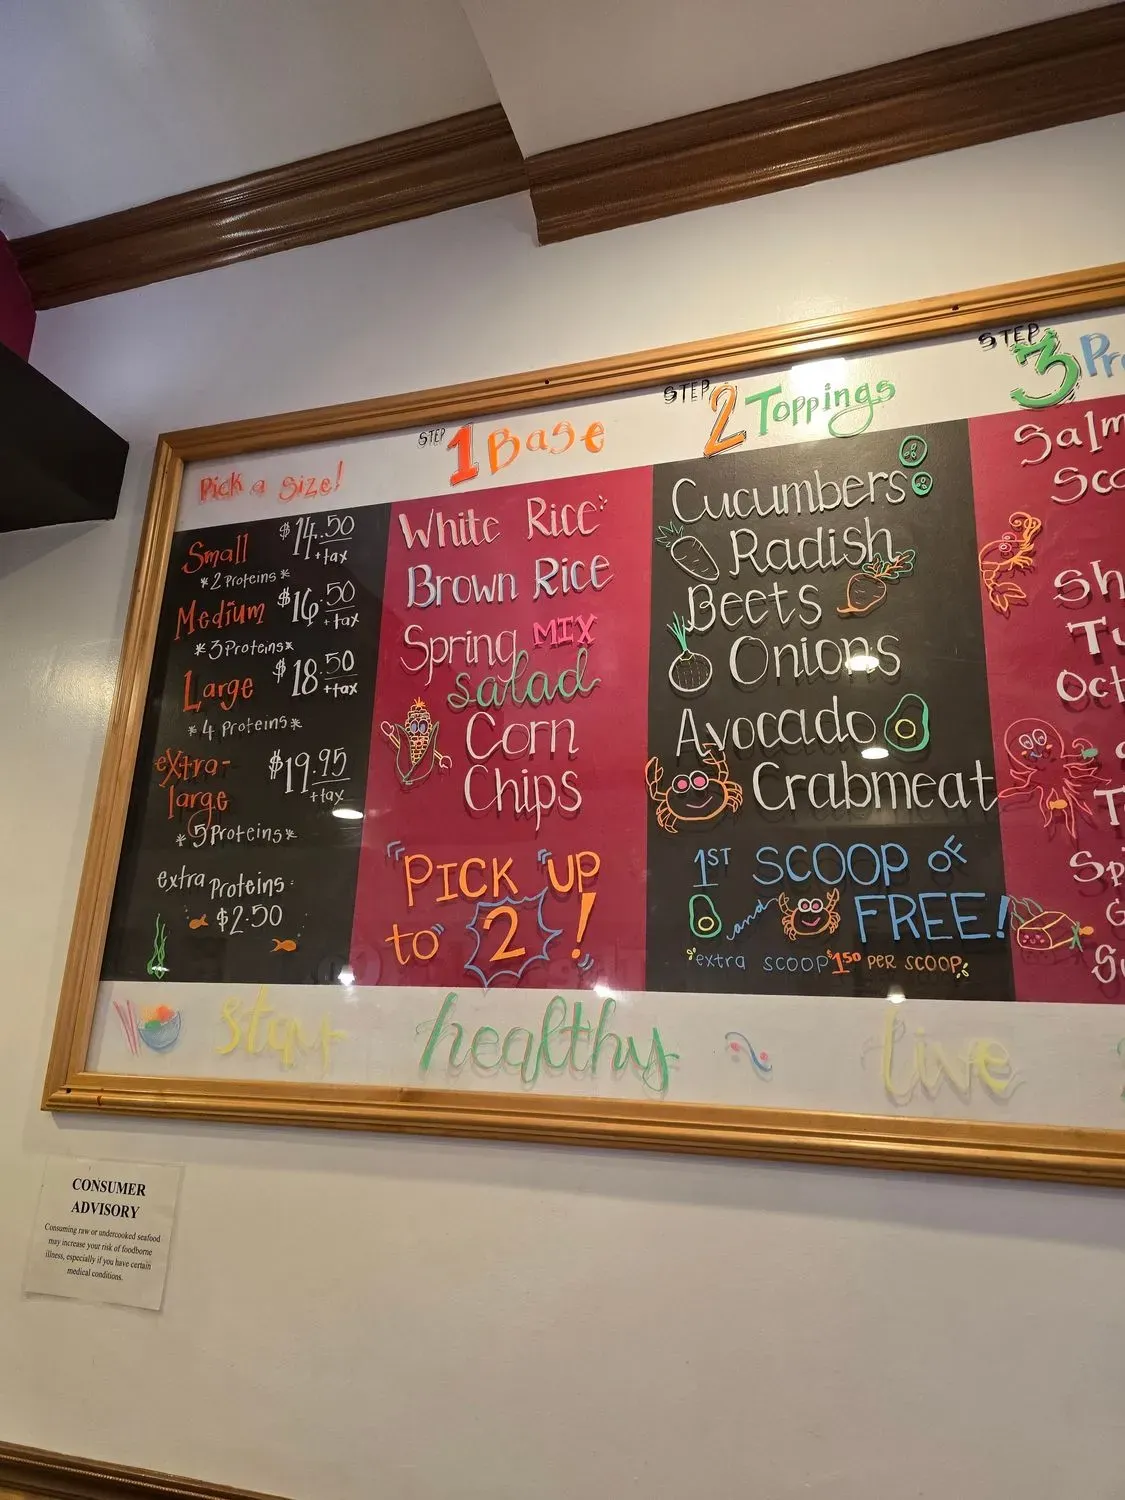 Pick a Size!
Small $14.50
+tax
*2 Proteins*
Medium $16.50
+tax
*3 Proteins*
Large $18.50
+tax
*4 Proteins*
extra-
large $19.95
+tax
*5 Proteins*
extra Proteins:
$2.50
STEP 1 Base
White Rice
Brown Rice
Spring MIX
salad
Corn
Chips
"PICK "UP
to 2!
STEP 2 Toppings
Cucumbers
Radish
Beets
Onions
Avocado
Crabmeat
1ST SCOOP OF
and FREE!
*extra scoop $1.50 PER SCOOP
STEP 3
stay healthy live
CONSUMER
ADVISORY
Consuming raw or undercooked seafood
may increase your risk of foodborne
illness, especially if you have certain
medical conditions.